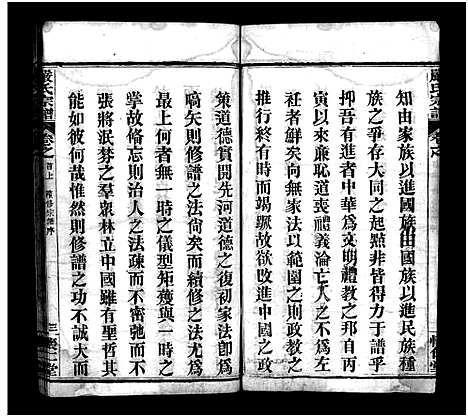 嚴氏宗譜
卷之首上
知由家族以進國族由國族以進民族種
族之爭存大同之起點非皆得力于譜乎
抑吾有進者中華爲文明禮教之邦自丙
寅以來廉恥道喪禮義淪亡人之不爲左
社者鮮矣無家法以範圍之則政教之
推行終有時而竭蹶故欲改進中國之政
策道德實開先河道德之復初家法卽爲
嚆矢則修譜之法尙矣而續修之法尤爲
最上何者無一時之儀型矩矱與一時之
掌故備忘則治人之法疎而不密弛而不
張將泯棼之羣衆林立中國雖有聖哲其
能如彼何哉惟然則修譜之功不誠大而
嚴氏宗譜
卷之首上
三 樂仁堂